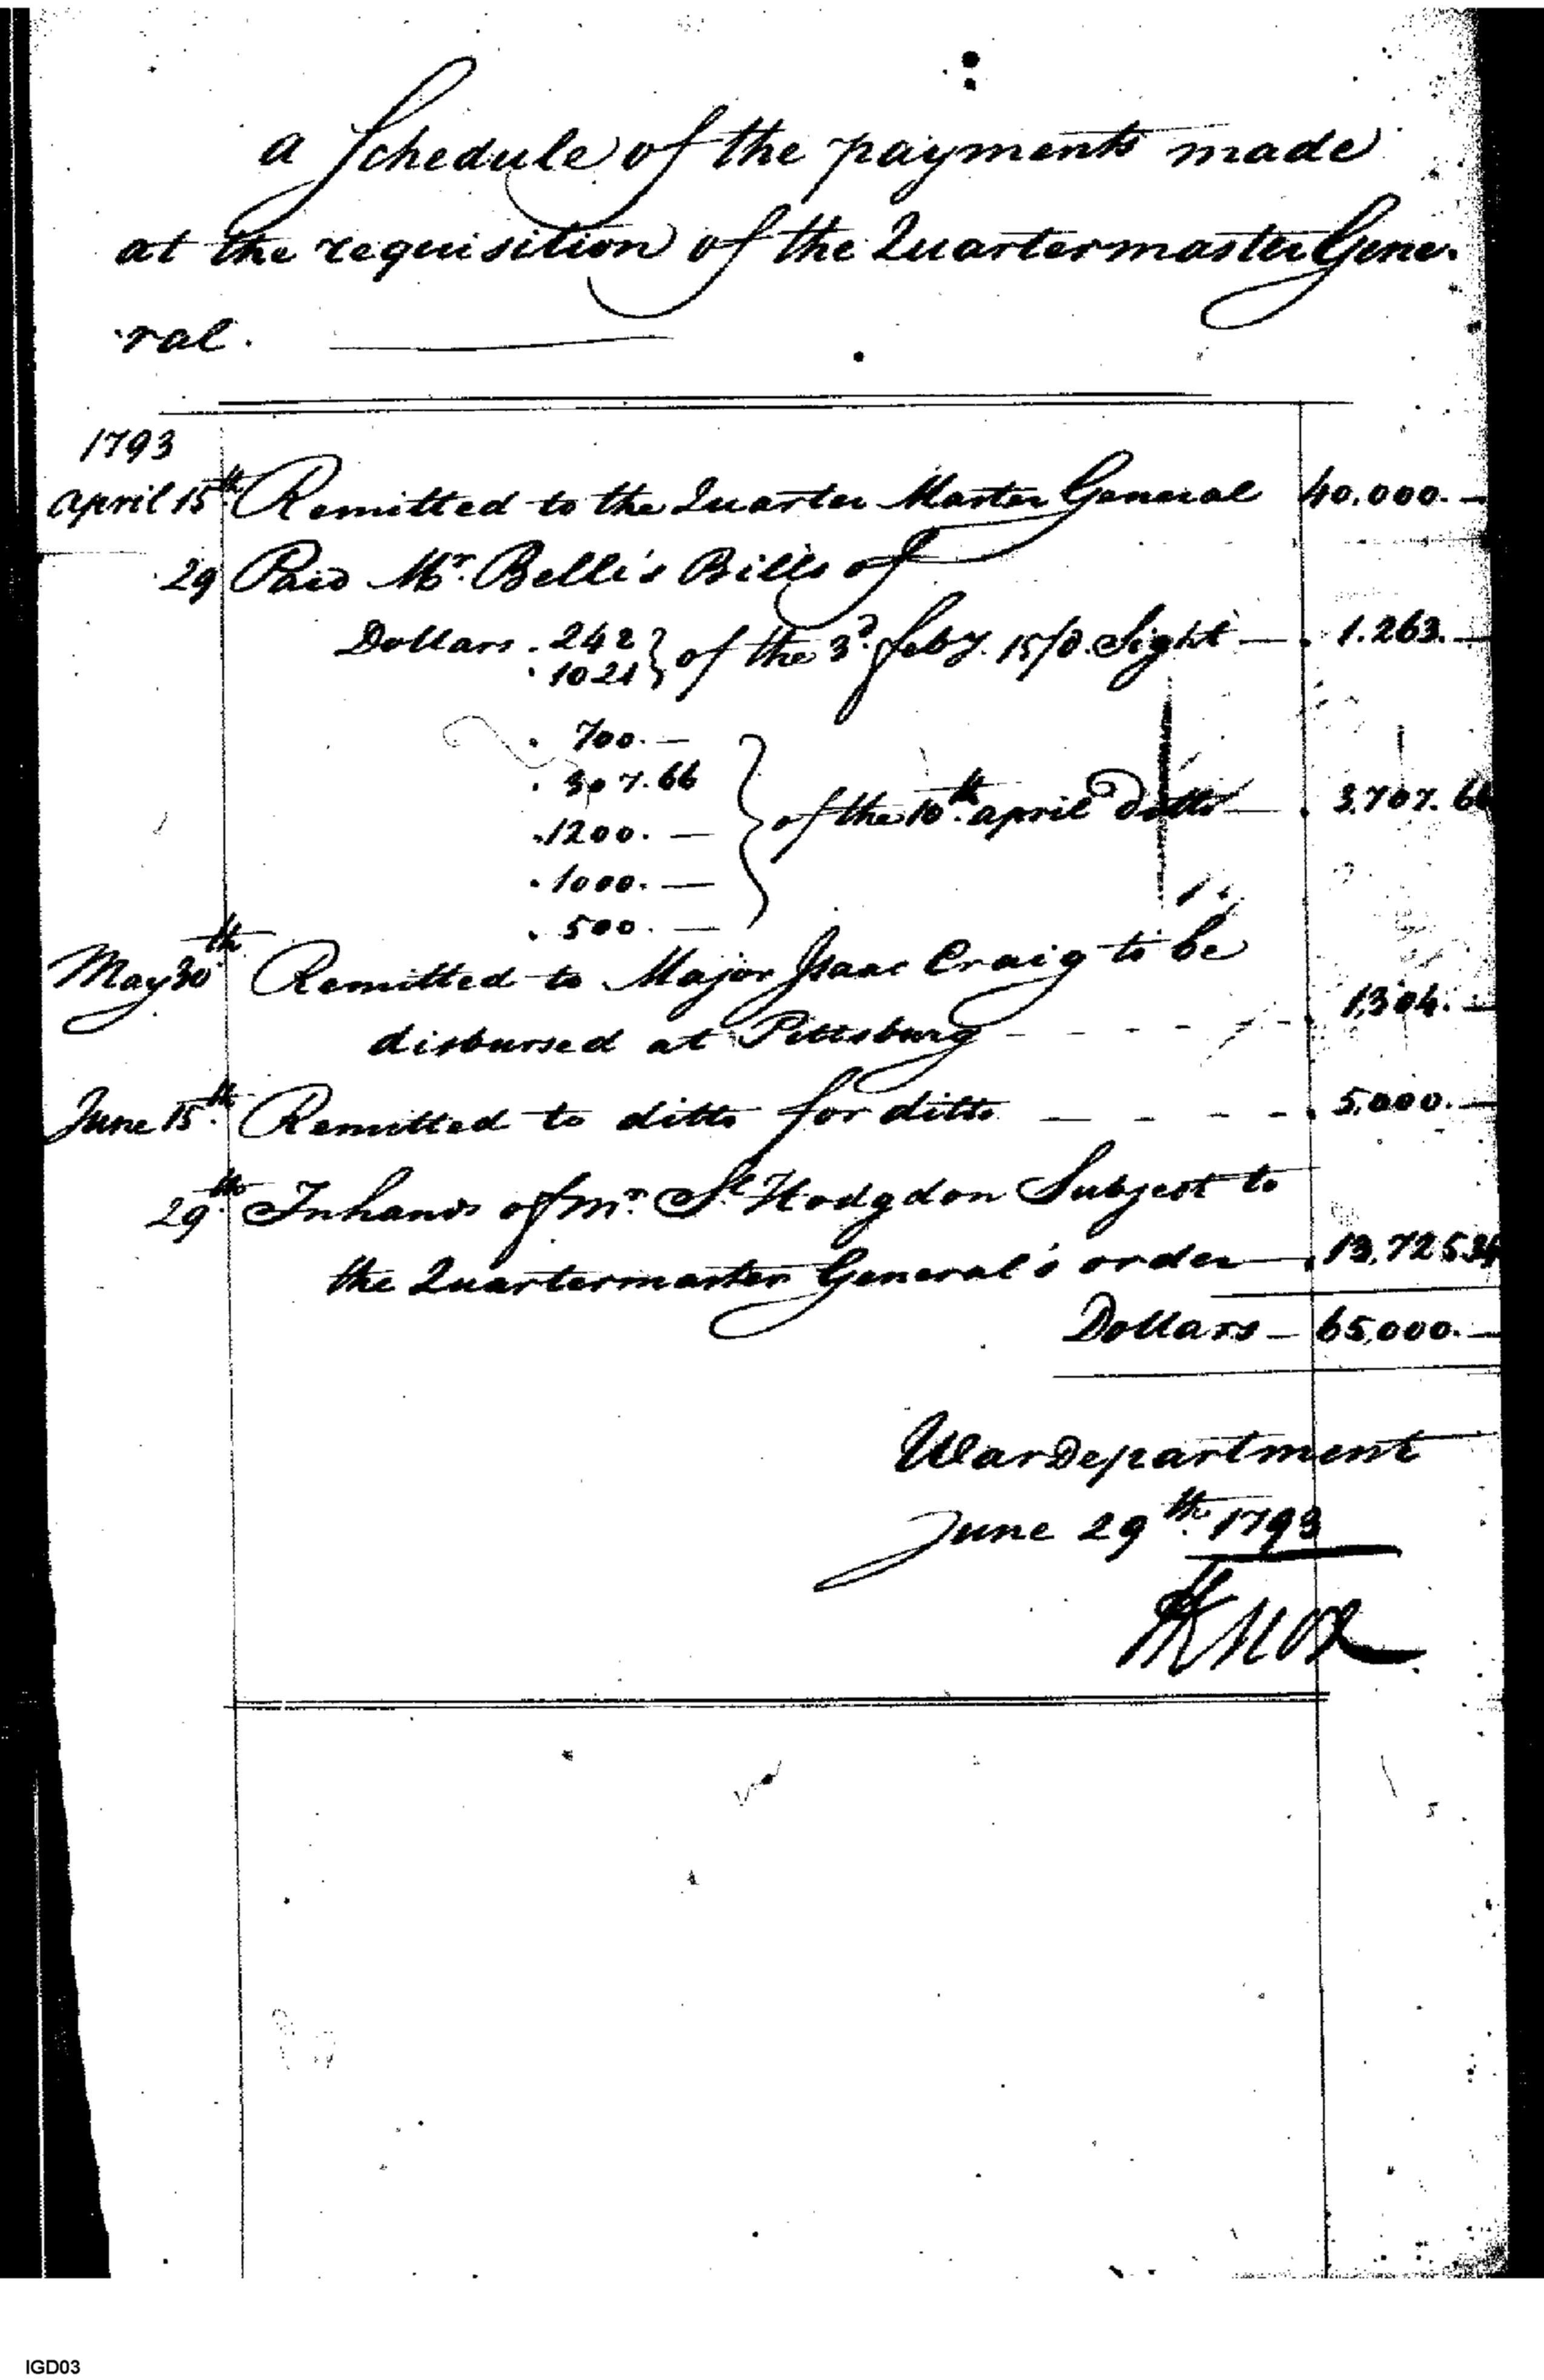 a Schedule of the payments made
at the requisition of the Quartermaster Gene-
-ral.
1793
April 15th Remitted to the Quarter Master General 40.000. —
29 Paid Mr. Belli's Bills of
Dollars . 242 } of the 3d. feby. 15/d. Sight — . 1.263. —
. 1021
. 700. —
. 307. 66
. 1200. — } of the 10th. april Ditto — . 3,707. 66
. 1000. —
. 500. —
May 30th Remitted to Major Isaac Craig to be
disbursed at Pittsburg - - - - - . 1,304. —
June 15th. Remitted to ditto for ditto - - - - . 5,000. —
29th. In hands of Mr. Sl. Hodgdon Subject to
the Quartermaster General's order — . 13,725 34
Dollars — 65,000. —
War Department
June 29th. 1793
HKnox
IGD03